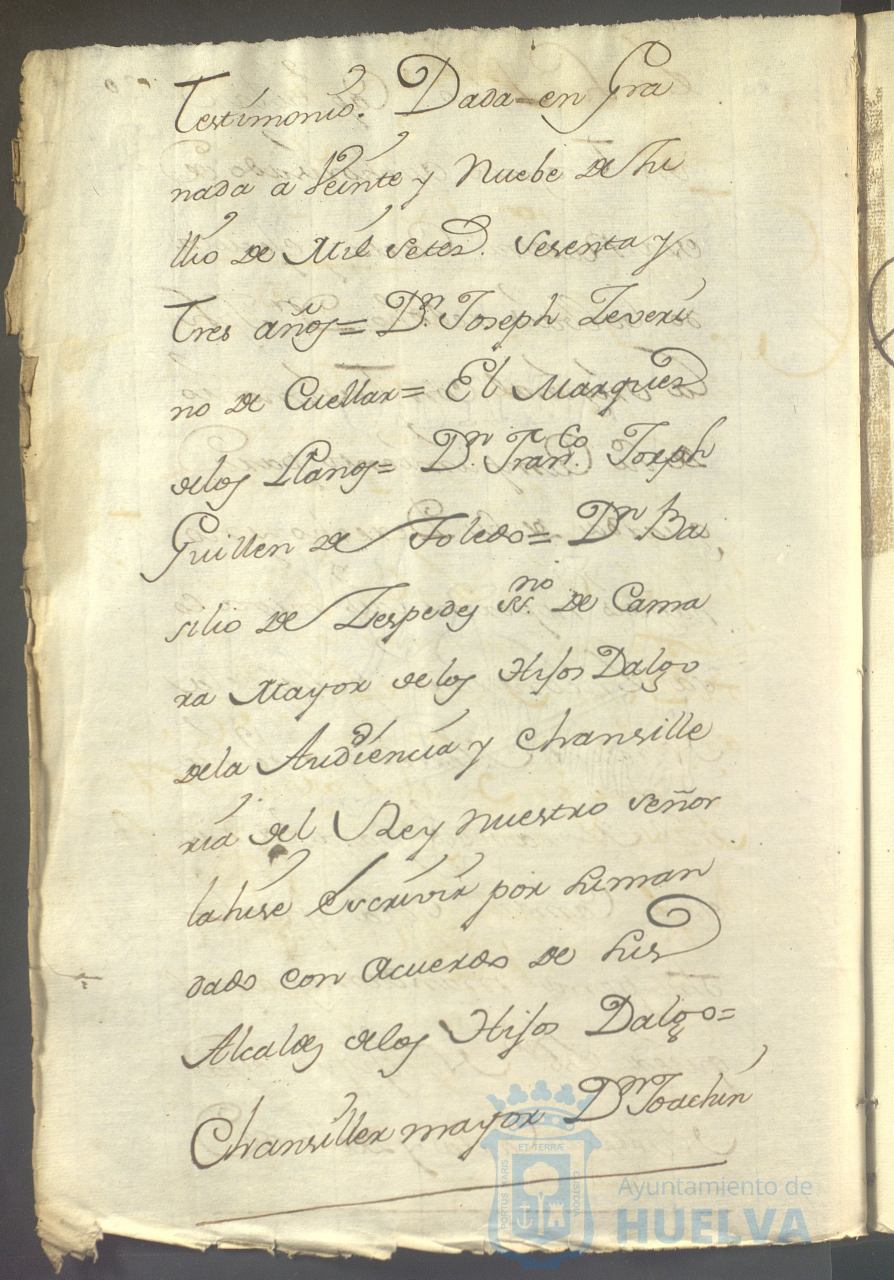 Testimonio. Dada en Gra
nada a Veinte y Nuebe de Ju
llio de Mil Setez.s Sesenta y
Tres años= D.n Joseph Zeveri
no de Cuellar= El Marques
delos Llanos= D.n Fran.co Joseph
Guillen de Toledo= D.n Ba
silio de Zespedes SS.no de Cama
ra Mayor delos Hijos Dalgo
dela Audiencia y Chansille
ria del Rey nuestro señor
la hise Escrivir por su man
dado con Acuerdo de sus
Alcaldes delos Hijos Dalgo=
Chansiller mayor D.n Joachin
PORTUS MARIS ET TERRÆ CUSTODIA
Ayuntamiento de
HUELVA